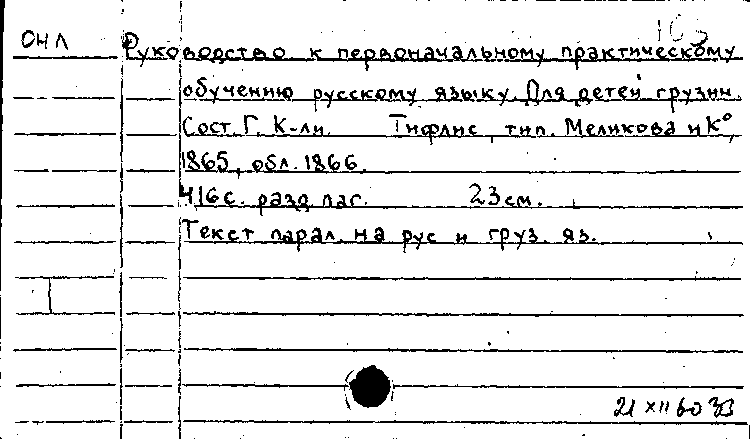 ОНЛ
Руководство к первоначальному практическому
обучению русскому языку. Для детей грузин.
Сост. Г. К-ли. Тифлис, тип. Меликова и К°,
1865, обл. 1866.
416 с. разд. паг. 23 см.
Текст парал. на рус и груз. яз.
21 XII 60